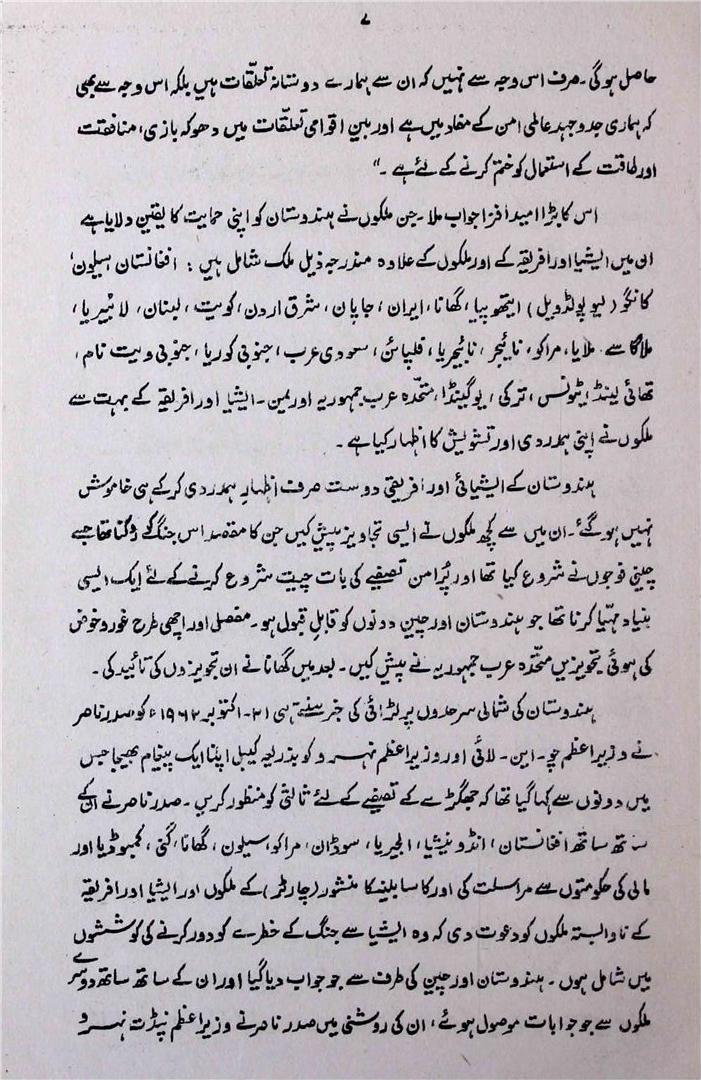 ۷
حاصل ہوگی۔ صرف اس وجہ سے نہیں کہ ان سے ہمارے دوستانہ تعلّقات ہیں بلکہ اس وجہ سے بھی
کہ ہماری جدوجہد عالمی امن کے مفاد میں ہے اور بین اقوامی تعلّقات میں دھوکہ بازی، منافقت
اور طاقت کے استعمال کو ختم کرنے کے لئے ہے ۔"
اس کا بڑا امید افزا جواب ملا۔ جن ملکوں نے ہندوستان کو اپنی حمایت کا یقین دلایا ہے
ان میں ایشیا اور افریقہ کے اور ملکوں کے علاوہ مندرجہ ذیل ملک شامل ہیں : افغانستان، سیلون،
کانگو (لیوپولڈویل) ایتھوپیا، گھانا، ایران، جاپان، شرق اردن، کویت، لبنان، لائبیریا،
ملاگاسے، ملایا، مراکو، نائیجر، نائیجریا، فلپائن، سعودی عرب، جنوبی کوریا، جنوبی ویت نام،
تھائی لینڈ، ٹیونس، ترکی، یوگینڈا، متحّدہ عرب جمہوریہ اور یمن۔ ایشیا اور افریقہ کے بہت سے
ملکوں نے اپنی ہمدردی اور تشویش کا اظہار کیا ہے ۔
ہندوستان کے ایشیائی اور افریقی دوست صرف اظہارِ ہمدردی کرکے ہی خاموش
نہیں ہوگئے۔ ان میں سے کچھ ملکوں نے ایسی تجاویز پیش کیں جن کا مقصد اس جنگ کو روکنا تھا جسے
چینی فوجوں نے شروع کیا تھا اور پُرامن تصفیے کی بات چیت شروع کرنے کے لئے ایک ایسی
بنیاد مہیّا کرنا تھا جو ہندوستان اور چین دونوں کو قابلِ قبول ہو۔ مفصل اور اچھی طرح غور و خوض
کی ہوئی تجویزیں متحّدہ عرب جمہوریہ نے پیش کیں۔ بعد میں گھانا نے ان تجویزوں کی تائید کی۔
ہندوستان کی شمالی سرحدوں پر لڑائی کی خبر سنتے ہی ۲۱۔ اکتوبر ۱۹۶۲ء کو صدر ناصر
نے وزیراعظم چو۔ این۔ لائی اور وزیراعظم نہرو کو بذریعہ کیبل اپنا ایک پیغام بھیجا جس
میں دونوں سے کہا گیا تھا کہ جھگڑے کے تصفیے کے لئے ثالثی کو منظور کریں۔ صدر ناصر نے اس کے
ساتھ ساتھ افغانستان، انڈونیشیا، الجیریا، سوڈان، مراکو، سیلون، گھانا، گنی، کمبوڈیا اور
مالی کی حکومتوں سے مراسلت کی اور کاسابلینکا منشور (چارٹر) کے ملکوں اور ایشیا اور افریقہ
کے ناوابستہ ملکوں کو دعوت دی کہ وہ ایشیا سے جنگ کے خطرے کو دور کرنے کی کوششوں
میں شامل ہوں۔ ہندوستان اور چین کی طرف سے جو جواب دیا گیا اور ان کے ساتھ ساتھ دوسرے
ملکوں سے جو جوابات موصول ہوئے، ان کی روشنی میں صدر ناصر نے وزیراعظم پنڈت نہرو